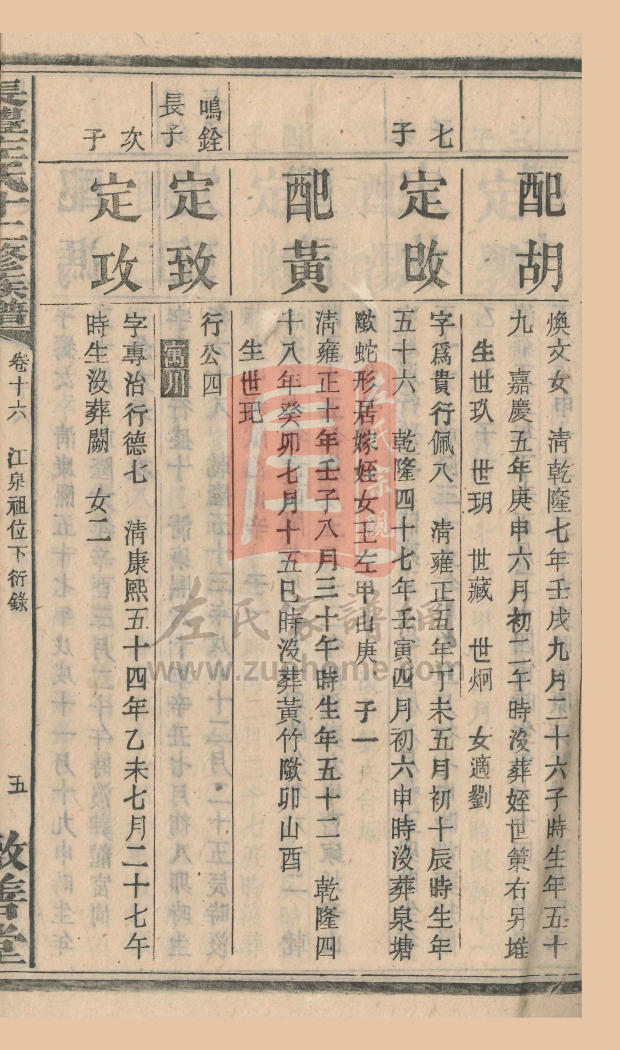 配胡
煥文女 清乾隆七年壬戌九月二十六子時生年五十
九 嘉慶五年庚申六月初二午時沒葬姪世策右另堆
生世玖 世玥 世藏 世炯 女適劉
七子
定畋
字爲貴行佩八 清雍正五年丁未五月初十辰時生年
五十六 乾隆四十七年壬寅四月初六申時沒葬泉塘
蛇形居嫁姪女王左甲山庚 子一
配黃
淸雍正十年壬子八月三十午時生年五十二 乾隆四
十八年癸卯七月十五巳時沒葬黃竹卯山酉
生世玘
鳴銓長子
定致
行公四
寓川
次子
定攻
字專治行德七 清康熙五十四年乙未七月二十七午
時生沒葬闕 女二
左氏十二修族譜
卷十六 江泉祖位下衍錄
五
敦善堂
左氏家譜網
www.zuohome.com